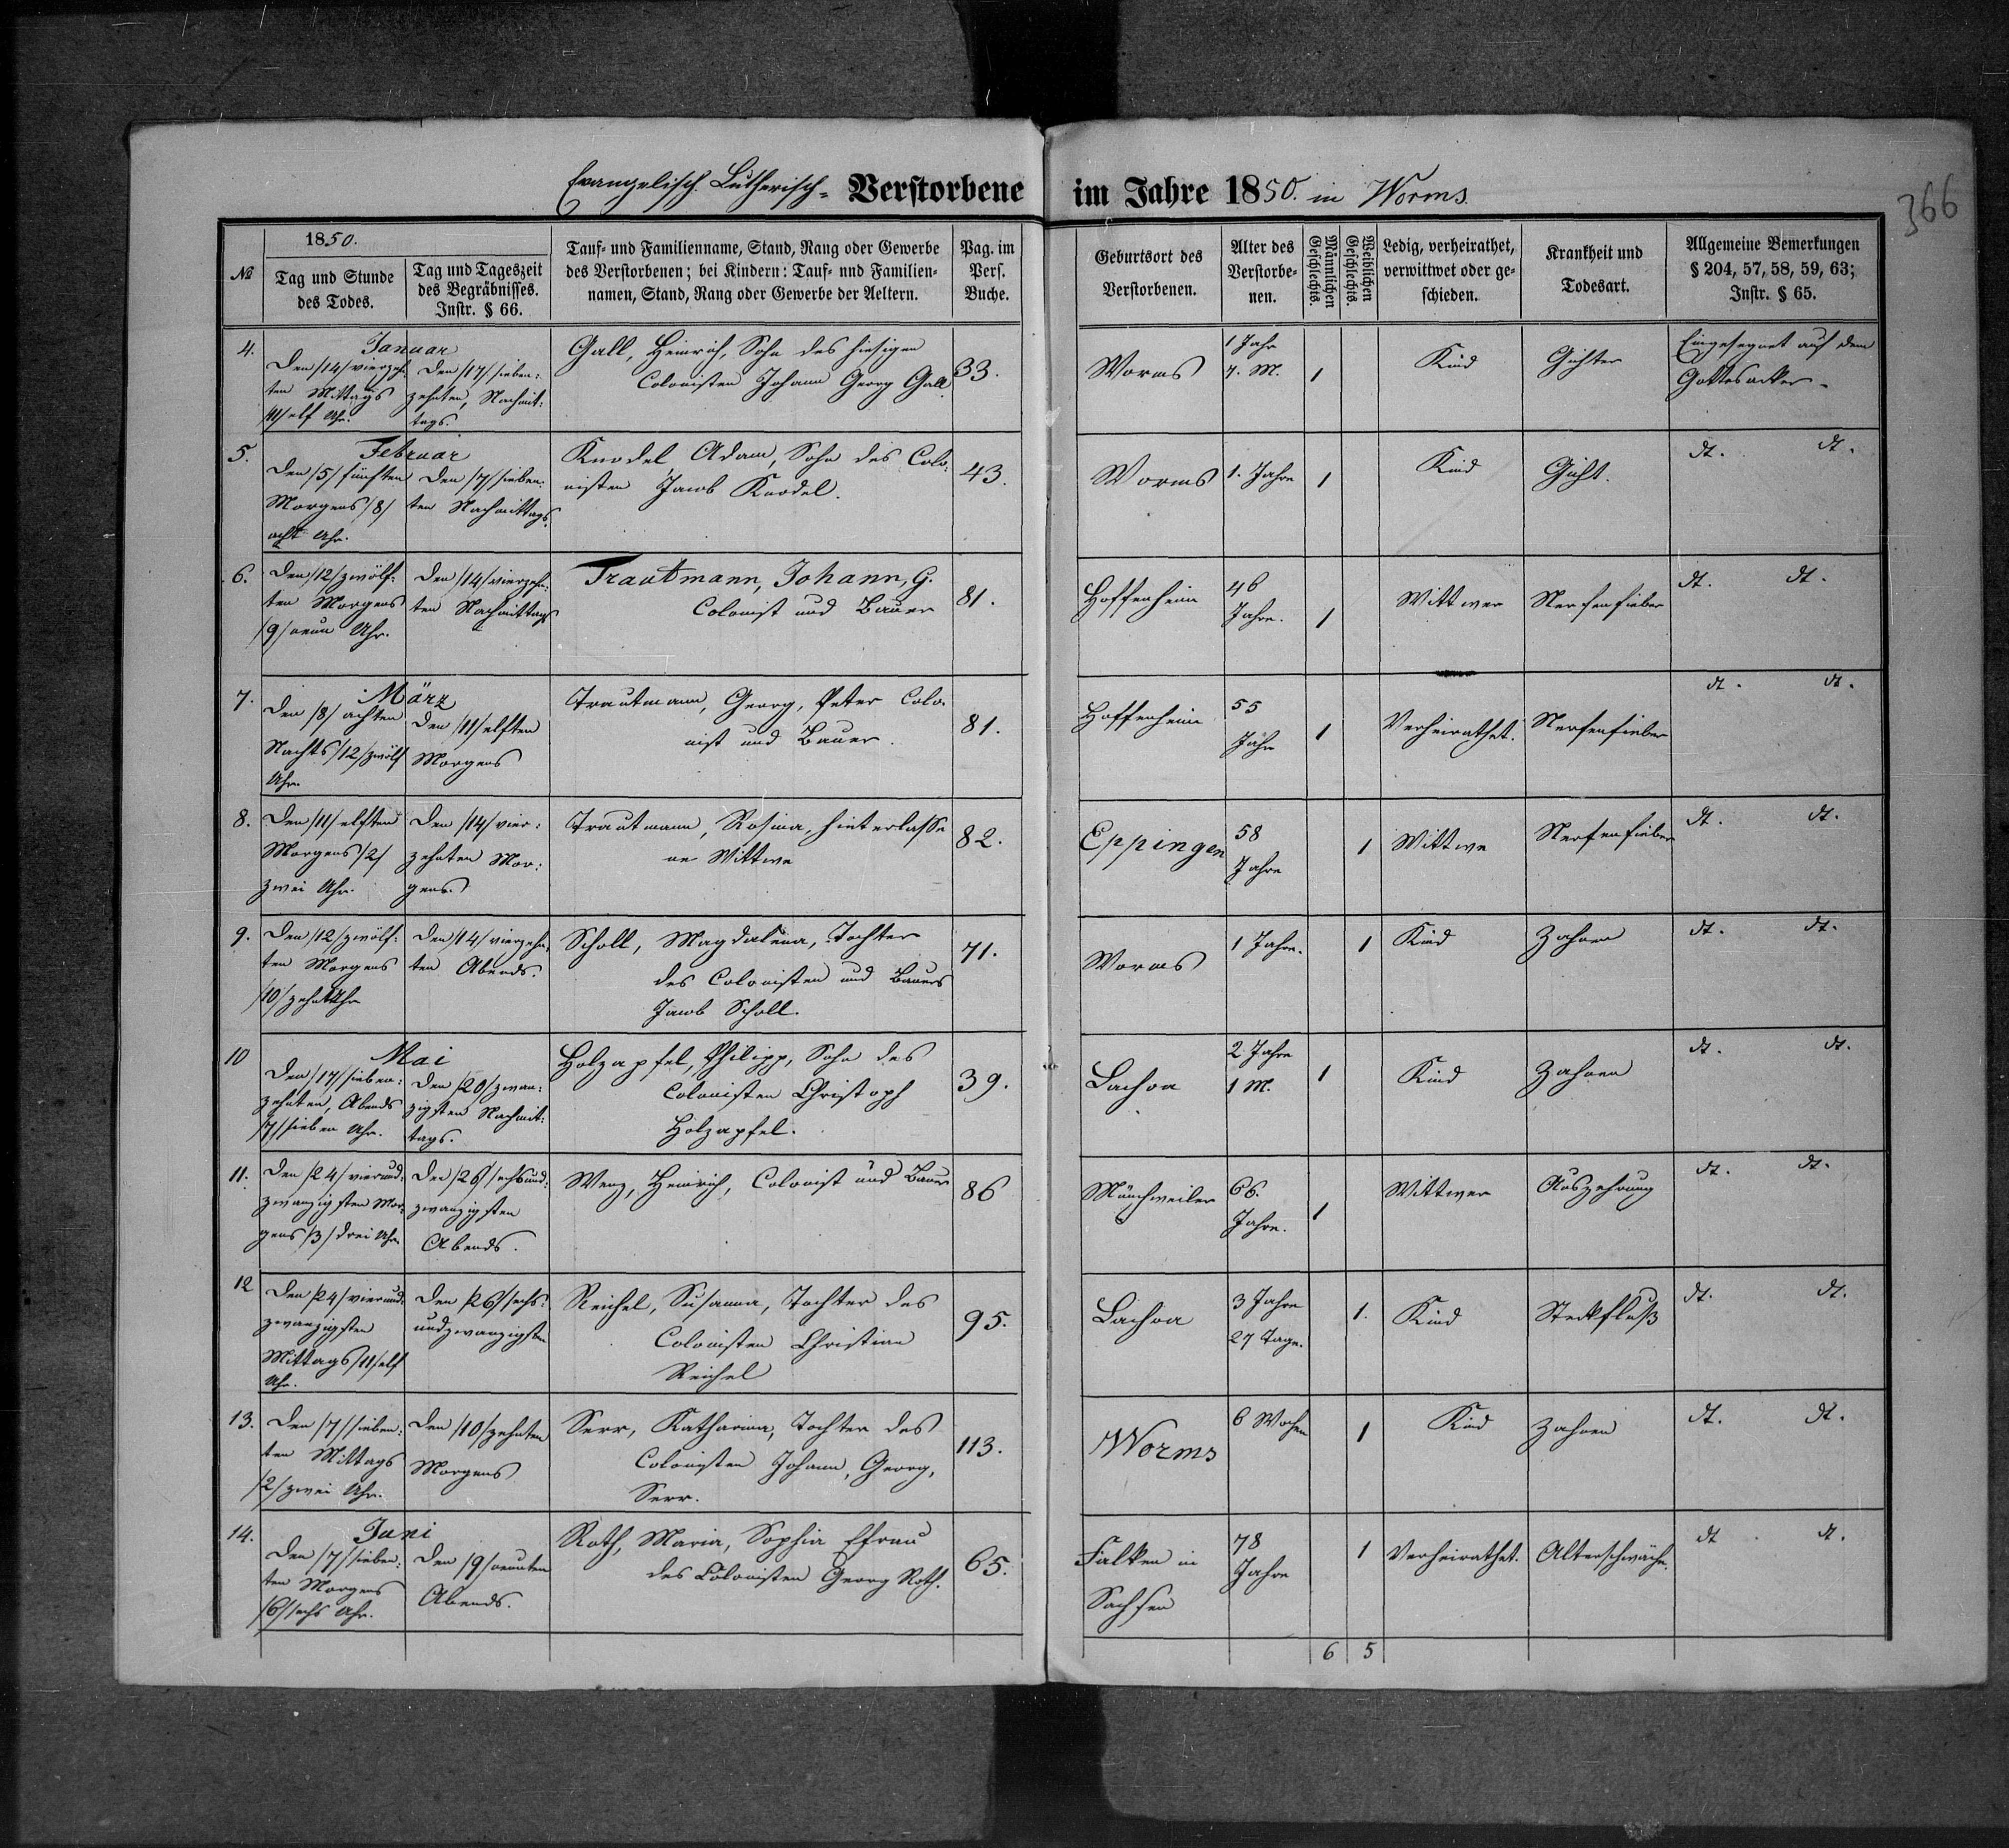 Evangelisch Lutherisch- Verstorbene im Jahre 1850. in Worms.
366
№
1850.
Tag und Stunde
des Todes.
Tag und Tageszeit
des Begräbnisses.
Instr. § 66.
Tauf- und Familienname, Stand, Rang oder Gewerbe
des Verstorbenen; bei Kindern: Tauf- und Familien-
namen, Stand, Rang oder Gewerbe der Aeltern.
Pag. im
Pers.
Buche.
Geburtsort des
Verstorbenen.
Alter des
Verstorbe-
nen.
Männlichen
Geschlechts.
Weiblichen
Geschlechts.
Ledig, verheirathet,
verwittwet oder ge-
schieden.
Krankheit und
Todesart.
Allgemeine Bemerkungen
§ 204, 57, 58, 59, 63;
Instr. § 65.
4.
Januar
Den /14/ vierzehn-
ten Mittags
/11/ elf Uhr.
Den /17/ sieben:
zehnten, Nachmit:
tags.
Gall, Heinrich, Sohn des hiesigen
Colonisten Johann Georg Gall
33.
Worms
1 Jahr
7. M.
1
Kind
Gichter
Eingesegnet auf dem
Gottesacker.
5.
Februar
Den /5/ fünften
Morgens /8/
acht Uhr.
Den /7/ sieben:
ten Nachmittags.
Knodel Adam, Sohn des Colo:
nisten Jacob Knodel.
43.
Worms
1. Jahr
1
Kind
Gicht.
dt. dt.
6.
Den /12/ zwölf:
ten Morgens
/9/ neun Uhr.
Den /14/ vierzehn:
ten Nachmittags
Trautmann, Johann, G.
Colonist und Bauer
81.
Hoffenheim
46
Jahre.
1
Wittwer
Nerfenfieber
dt. dt.
7.
März
Den /8/ achten
Nachts /12/ zwölf
Uhr.
Den /11/ elften
Morgens
Trautmann, Georg, Peter Colo-
nist und Bauer.
81.
Hoffenheim
55
Jahr
1
Verheirathet.
Nerfenfieber
dt. dt.
8.
Den /11/ elften
Morgens /2/
zwei Uhr.
Den /14/ vier:
zehnten Mor:
gens.
Trautmann, Rosina, hinterlasse
ne Wittwe
82.
Eppingen
58
Jahre
1
Wittwe
Nerfenfieber
dt. dt.
9.
Den /12/ zwölf:
ten Morgens
/10/ zehn Uhr
Den /14/ vierzehn
ten Abends.
Scholl, Magdalena, Tochter
des Colonisten und Bauers
Jacob Scholl.
71.
Worms
1 Jahr.
1
Kind
Zahnen
dt. dt.
10
Mai
Den /17/ sieben:
zehnten, Abends
/7/ sieben Uhr.
Den /20/ zwan:
zigsten Nachmit:
tags.
Holzapfel, Philipp, Sohn des
Colonisten Christoph
Holzapfel.
39.
2 Jahre
1 M.
1
Kind
Zahnen
dt. dt.
11.
Den /24/ vierund:
zwanzigsten Mor:
gens /3/ drei Uhr.
Den /26/ sechsund:
zwanzigsten
Abends.
Wenz, Heinrich, Colonist und Bauer
86
Münchweiler
66.
Jahre.
1
Wittwer
Auszehrung
dt. dt.
12
Den /24/ vierund:
zwanzigsten
Mittags /11/ elf
Uhr.
Den /26/ sechs:
undzwanzigsten
Reichel, Susanna, Tochter des
Colonisten Christian
Reichel
95.
3 Jahre
27 Tage.
1.
Kind
Steckfluß
dt. dt.
13.
Den /7/ sieben:
ten Mittags
/2/ zwei Uhr.
Den /10/ zehnten
Morgens
Serr, Katharina, Tochter des
Colonisten Johann, Georg,
Serr.
113.
Worms
6 Wochen
1
Kind
Zahnen
dt. dt.
14.
Juni
Den /7/ sieben:
ten Morgens
/6/ sechs Uhr.
Den /9/ neunten
Abends.
Roth, Maria, Sophia Ehfrau
des Colonisten Georg Roth.
65.
Falken in
Sachsen
78
Jahre
1
Verheirathet.
Altersschwäche.
dt dt.
6 5